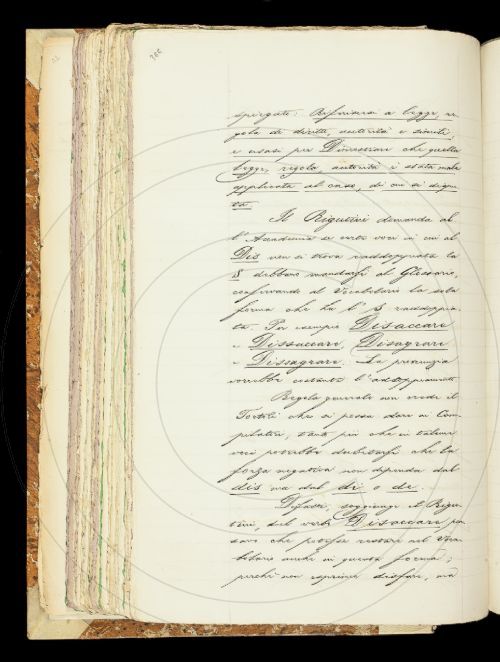 spiegate: Riferirsi a legge, re-
gola di diritto, autorità e simili,
e usasi per Dimostrare che quella
legge, regola, autorità è stata male
applicata al caso, di cui si dispu-
ta.
Il Rigutini domanda al-
l'Accademia se certe voci in cui al
Dis non si trova raddoppiata la
S debbano mandarsi al Glossario,
conservando al Vocabolario la sola
forma che ha l'S raddoppia-
ta. Per esempio Disaccare
e Dissaccare, Disagrare
e Dissagrare. La pronunzia
vorrebbe costante l'addoppiamento.
Regola generale non crede il
Tortoli che si possa dare ai Com-
pilatori, tanto più che in talune
voci potrebbe dubitarsi che la
forza negativa non dipenda dal
dis ma dal di o de.
Difatti, soggiunge il Rigu-
tini, del verbo Disaccare
che potesse restare nel Voca-
bolario anche in questa forma;
perchè non esprime disfare, ma